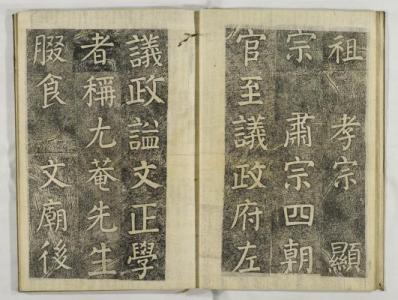 祖 孝宗 顯
宗 肅宗四朝
官至議政府左
議政謚文正學
者稱尤菴先生
腏食 文廟後